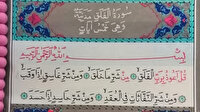 سُورَةُ الْفَلَقِ مَدَنِيَّةٌ
وَهِيَ خَمْسُ آيَاتٍ
بِسْمِ اللّٰهِ الرَّحْمٰنِ الرَّحِيمِ
قُلْ أَعُوذُ بِرَبِّ الْفَلَقِ مِنْ شَرِّ مَا خَلَقَ وَمِنْ شَرِّ غَاسِقٍ إِذَا وَقَبَ
وَمِنْ شَرِّ النَّفَّاثَاتِ فِي الْعُقَدِ وَمِنْ شَرِّ حَاسِدٍ إِذَا حَسَدَ